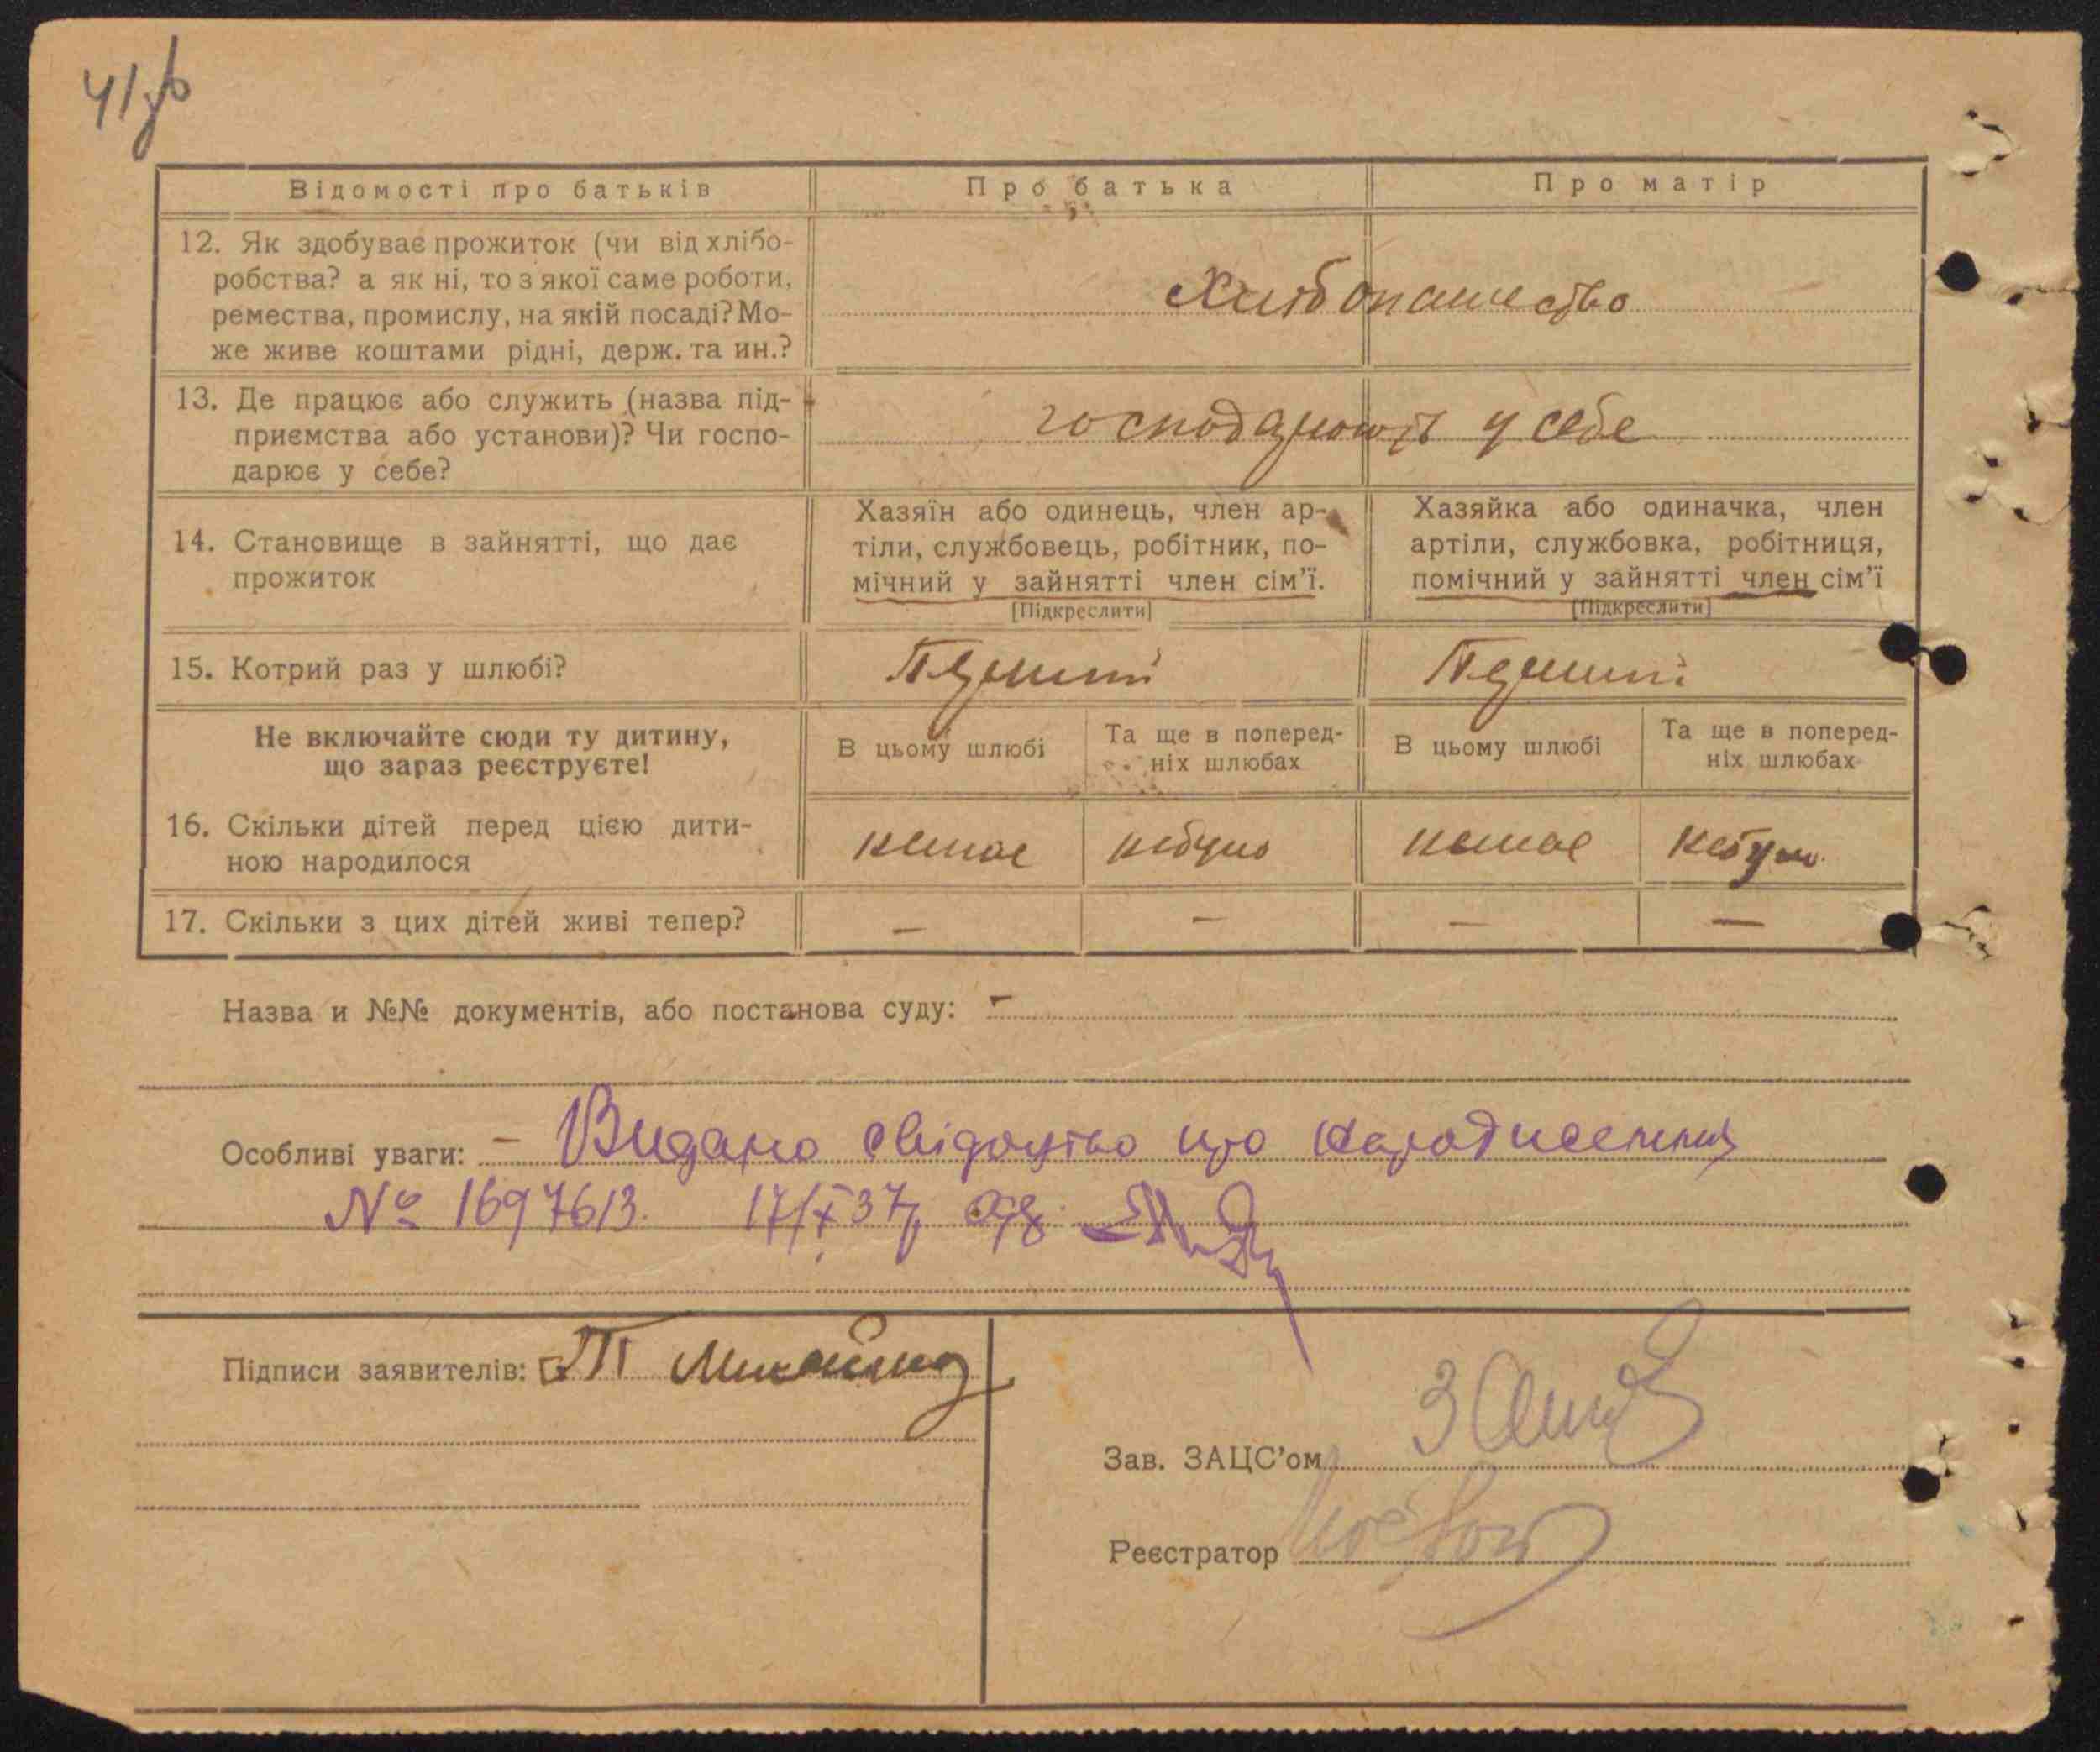 Відомості про батьків
Про батька
Про матір
12. Як здобуває прожиток (чи від хлібо-
робства? а як ні, то з якої саме роботи,
ремества, промислу, на якій посаді? Мо-
же живе коштами рідні, держ. та ин.?
Хлібопашество
13. Де працює або служить (назва під-
приємства або установи)? Чи госпо-
дарює у себе?
господарюють у себе
14. Становище в зайнятті, що дає
прожиток
Хазяїн або одинець, член ар-
тіли, службовець, робітник, по-
мічний у зайнятті член сім’ї.
[Підкреслити]
Хазяйка або одиначка, член
артіли, службовка, робітниця,
помічний у зайнятті член сім’ї
[Підкреслити]
15. Котрий раз у шлюбі?
Перший
Перший
Не включайте сюди ту дитину,
що зараз реєструєте!
В цьому шлюбі
Та ще в поперед-
ніх шлюбах
В цьому шлюбі
Та ще в поперед-
ніх шлюбах
16. Скільки дітей перед цією дити-
ною народилося
немає
небуло
немає
небуло
17. Скільки з цих дітей живі тепер?
— — — —
Назва и №№ документів, або постанова суду: –
Особливі уваги: – Видано свідоцтво про народження
№ 1697613. 17/X 37р.
Підписи заявителів:
Зав. ЗАЦС’ом
Реєстратор